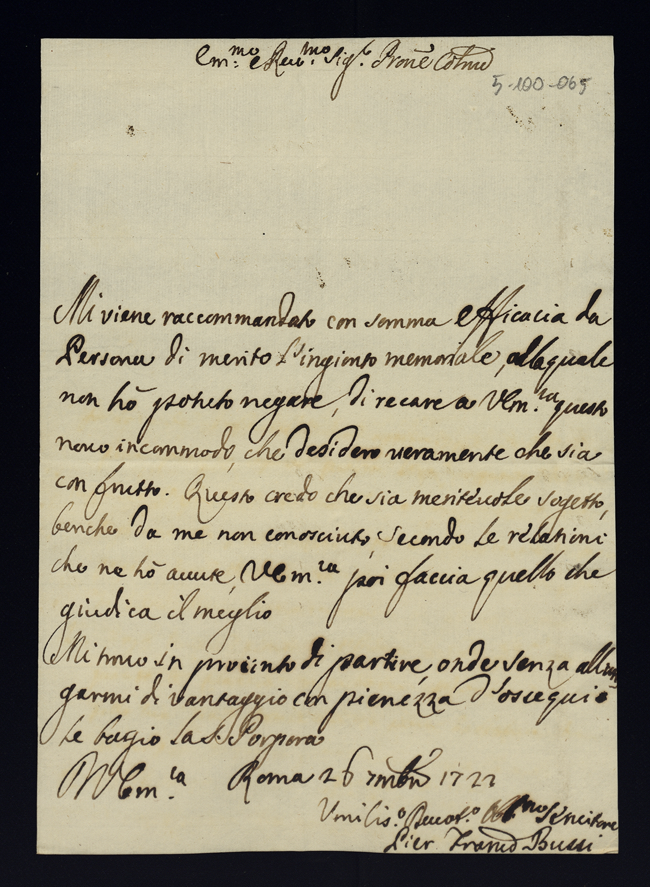 Em.mo e Reu.mo Sig.r Prone Colmo
5-100-065
Mi viene raccommandato con somma efficacia da
Persona di merito l'ingionto memoriale, alla quale
non hò potuto negare, di recare a VEm.za questo
nouo incommodo, che desidero ueramente che sia
con frutto. Questo credo che sia meriteuole sogetto,
benche da me non conosciuto, secondo le relationi
che ne hò auute, VEm.za poi faccia quello che
giudica il meglio
Mi trouo in procinto di partire, onde senza allun
garmi di vantaggio con pienezza d'ossequio
le bagio la S. Porpora
VEm.za Roma 26 7mbre 172
Vmilis.o Deuot.o Obl.mo Seruitore
Pier Franco Bussi